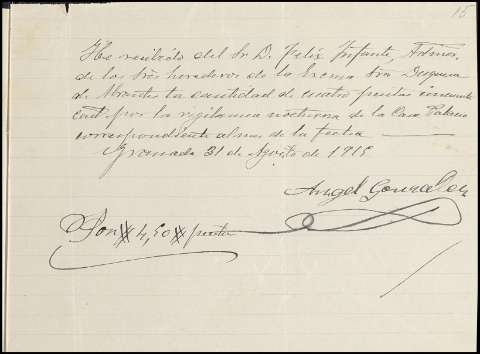 15
He recibido del Sr D. Felix Infante, Admor,
de los Srès herederos de la Excma Sra Duquesa
de Abrantes la cantidad de cuatro pesetas cincuenta
cent por la vigilancia nocturna de la Casa Palacio
correspondiente al mes de la fecha
Granada 31 de Agosto de 1915
Angel Gonzalez
Son # 4,50 # pesetas